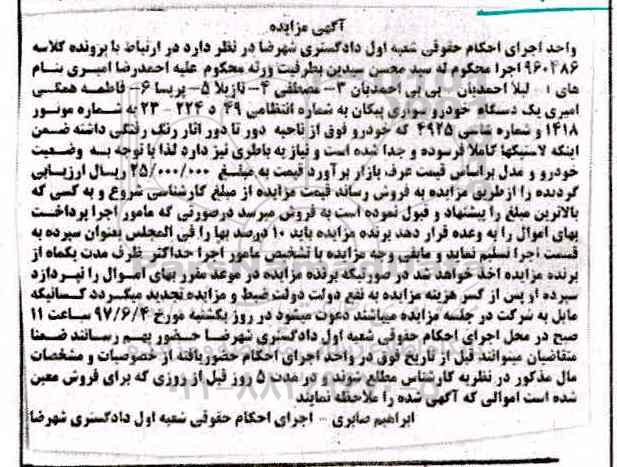 آگهی مزایده
واحد اجرای احکام حقوقی شعبه اول دادگستری شهرضا در نظر دارد در ارتباط با پرونده کلاسه
۹۶۰۴۸۶ اجرا محکوم له سید محسن سیدین بطرفیت ورثه محکوم علیه احمدرضا امیری بنام
های ۱- لیلا احمدیان - بی بی احمدیان ۳- مصطفی ۴- نازیلا ۵- پریسا ۶- فاطمه همگی
امیری یک دستگاه خودرو سواری پیکان به شماره انتظامی ۴۹ د ۲۲۴ - ۲۳ به شماره موتور
۱۴۱۸ و شماره شاسی ۴۹۲۵ که خودرو فوق از ناحیه دور تا دور اثار رنگ رفتگی داشته ضمن
اینکه لاستیکها کاملا فرسوده و جدا شده است و نیاز به باطری نیز دارد لذا با توجه به وضعیت
خودرو و مدل براساس قیمت عرف بازار برآورد قیمت به مبلغ ۲۵/۰۰۰/۰۰۰ ریال ارزیابی
گردیده را از طریق مزایده به فروش رساند قیمت مزایده از مبلغ کارشناسی شروع و به کسی که
بالاترین مبلغ را پیشنهاد و قبول نموده است به فروش میرسد درصورتی که مامور اجرا پرداخت
بهای اموال را به وعده قرار دهد برنده مزایده باید ۱۰ درصد بها را فی المجلس بعنوان سپرده به
قسمت اجرا تسلیم نماید و مابقی وجه مزایده با تشخیص مامور اجرا حداکثر ظرف مدت یکماه از
برنده مزایده اخذ خواهد شد در صورتیکه برنده مزایده در موعد مقرر بهای اموال را نپردازد
سپرده او پس از کسر هزینه مزایده به نفع دولت دولت ضبط و مزایده تجدید میگردد کسانیکه
مایل به شرکت در جلسه مزایده میباشند دعوت میشود در روز یکشنبه مورخ ۹۷/۶/۴ ساعت ۱۱
صبح در محل اجرای احکام حقوقی شعبه اول دادگستری شهرضا حضور بهم رسانند ضمنا
متقاضیان میتوانند قبل از تاریخ فوق در واحد اجرای احکام حضور یافته از خصوصیات و مشخصات
مال مذکور در نظریه کارشناس مطلع شوند و در مدت ۵ روز قبل از روزی که برای فروش معین
شده است اموالی که آگهی شده را ملاحظه نمایند
ابراهیم صابری - اجرای احکام حقوقی شعبه اول دادگستری شهرضا